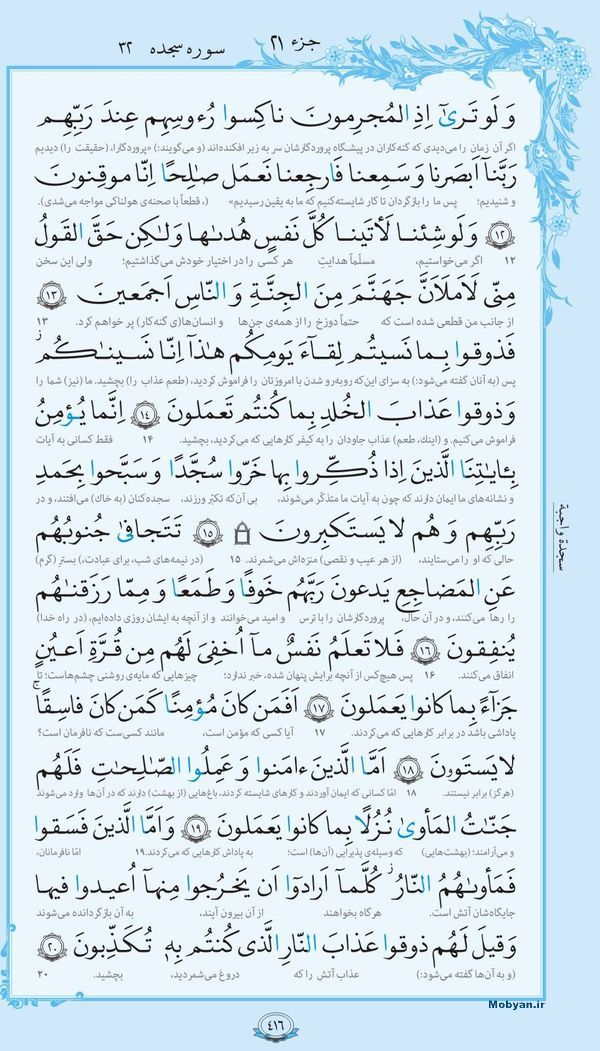 جزء ۲۱
سوره سجده ۳۲
وَ لَو تَرىٰٓ اِذِ المُجرِمونَ ناکِسوا رُءوسِهِم عِندَ رَبِّهِم
اگر آن زمان را می‌دیدی که گنه‌کاران در پیشگاه پروردگارشان سر به زیر افکنده‌اند (و می‌گویند:) «پروردگارا، (حقیقت را) دیدیم
رَبَّنآ اَبصَرنا وَ سَمِعنا فَارجِعنا نَعمَل صٰلِحًا اِنّا موقِنونَ
و شنیدیم؛ پس ما را بازگردان تا کار شایسته‌کنیم که ما به یقین رسیدیم» (، قطعاً با صحنه‌ی هولناکی مواجه می‌شدی).
﴿۱۲﴾ وَلَو شِئنا لَأٰتَینا کُلَّ نَفسٍ هُدىٰها وَلٰکِن حَقَّ القَولُ
۱۲ اگر می‌خواستیم، مسلّماً هدایتِ هر کسی را در اختیار خودش می‌گذاشتیم؛ ولی این سخن
مِنّی لَاَملَاَنَّ جَهَنَّمَ مِنَ الجِنَّةِ وَ النّاسِ اَجمَعینَ ﴿۱۳﴾
از جانب من قطعی شده است که حتماً دوزخ را از همه‌ی جن‌ها و انسان‌ها(ی گنه‌کار) پر خواهم کرد. ۱۳
فَذوقوا بِما نَسیتُم لِقآءَ یَومِکُم هٰذآ اِنّا نَسینٰکُم ۖ
پس (به آنان گفته می‌شود:) به سزای این‌که روبه‌رو شدن با امروزتان را فراموش کردید، (طعم عذاب را) بچشید. ما (نیز) شما را
وَ ذوقوا عَذابَ الخُلدِ بِما کُنتُم تَعمَلونَ ﴿۱۴﴾ اِنَّما یُؤمِنُ
فراموش می‌کنیم. و (اینک، طعم) عذاب جاودان را به کیفر کارهایی که می‌کردید، بچشید. ۱۴ فقط کسانی به آیات
بِـٔایٰتِنَا الَّذینَ اِذا ذُکِّروا بِها خَرّوا سُجَّدًا وَ سَبَّحوا بِحَمدِ
و نشانه‌های ما ایمان دارند که چون به آیات ما متذکّر می‌شوند، بی‌آن‌که تکبّر ورزند، سجده‌کنان (به خاک) می‌افتند، و در
رَبِّهِم وَ هُم لا یَستَکبِرونَ ۩ ﴿۱۵﴾ تَتَجافىٰ جُنوبُهُم
حالی که او را می‌ستایند، (از هر عیب و نقصی) منزه‌اش می‌شمرند. ۱۵ (در نیمه‌های شب، برای عبادت،) بستر (گرم)
سجدة واجبة
عَنِ المَضاجِعِ یَدعونَ رَبَّهُم خَوفًا وَ طَمَعًا وَ مِمّا رَزَقنٰهُم
را رها می‌کنند، و در آن حال، پروردگارشان را با ترس و امید می‌خوانند و از آنچه به ایشان روزی داده‌ایم، (در راه خدا)
یُنفِقونَ ﴿۱۶﴾ فَلا تَعلَمُ نَفسٌ مآ اُخفِیَ لَهُم مِن قُرَّةِ اَعیُنٍ
انفاق می‌کنند. ۱۶ پس هیچ‌کس از آنچه برایش پنهان شده، خبر ندارد؛ چیزهایی که مایه‌ی روشنی چشم‌هاست؛ تا
جَزآءً بِما کانوا یَعمَلونَ ﴿۱۷﴾ اَفَمَن کانَ مُؤمِنًا کَمَن کانَ فاسِقًا ۚ
پاداشی باشد در برابر کارهایی که می‌کردند. ۱۷ آیا کسی که مؤمن است، مانند کسی‌ست که نافرمان است؟
لا یَستَوونَ ﴿۱۸﴾ اَمَّا الَّذینَ ءامَنوا وَ عَمِلُوا الصّٰلِحٰتِ فَلَهُم
(هرگز) برابر نیستند. ۱۸ امّا کسانی که ایمان آوردند و کارهای شایسته کردند، باغ‌هایی (از بهشت) دارند که در آن‌ها وارد می‌شوند
جَنّٰتُ المَأوىٰ نُزُلًا بِما کانوا یَعمَلونَ ﴿۱۹﴾ وَ اَمَّا الَّذینَ فَسَقوا
و می‌آرامند؛ (بهشت‌هایی) که وسیله‌ی پذیرایی (آن‌ها) است؛ به پاداش کارهایی که می‌کردند. ۱۹ امّا نافرمانان،
فَمَأوىٰهُمُ النّارُ ۖ کُلَّمآ اَرادوٓا اَن یَخرُجوا مِنهآ اُعیدوا فیها
جایگاه‌شان آتش است. هرگاه بخواهند از آن بیرون آیند، به آن بازگردانده می‌شوند
وَ قیلَ لَهُم ذوقوا عَذابَ النّارِ الَّذی کُنتُم بِهٖ تُکَذِّبونَ ﴿۲۰﴾
(و به آن‌ها گفته می‌شود:) عذاب آتش را که دروغ می‌شمردید، بچشید. ۲۰
۴۱۶
Mobyan.ir